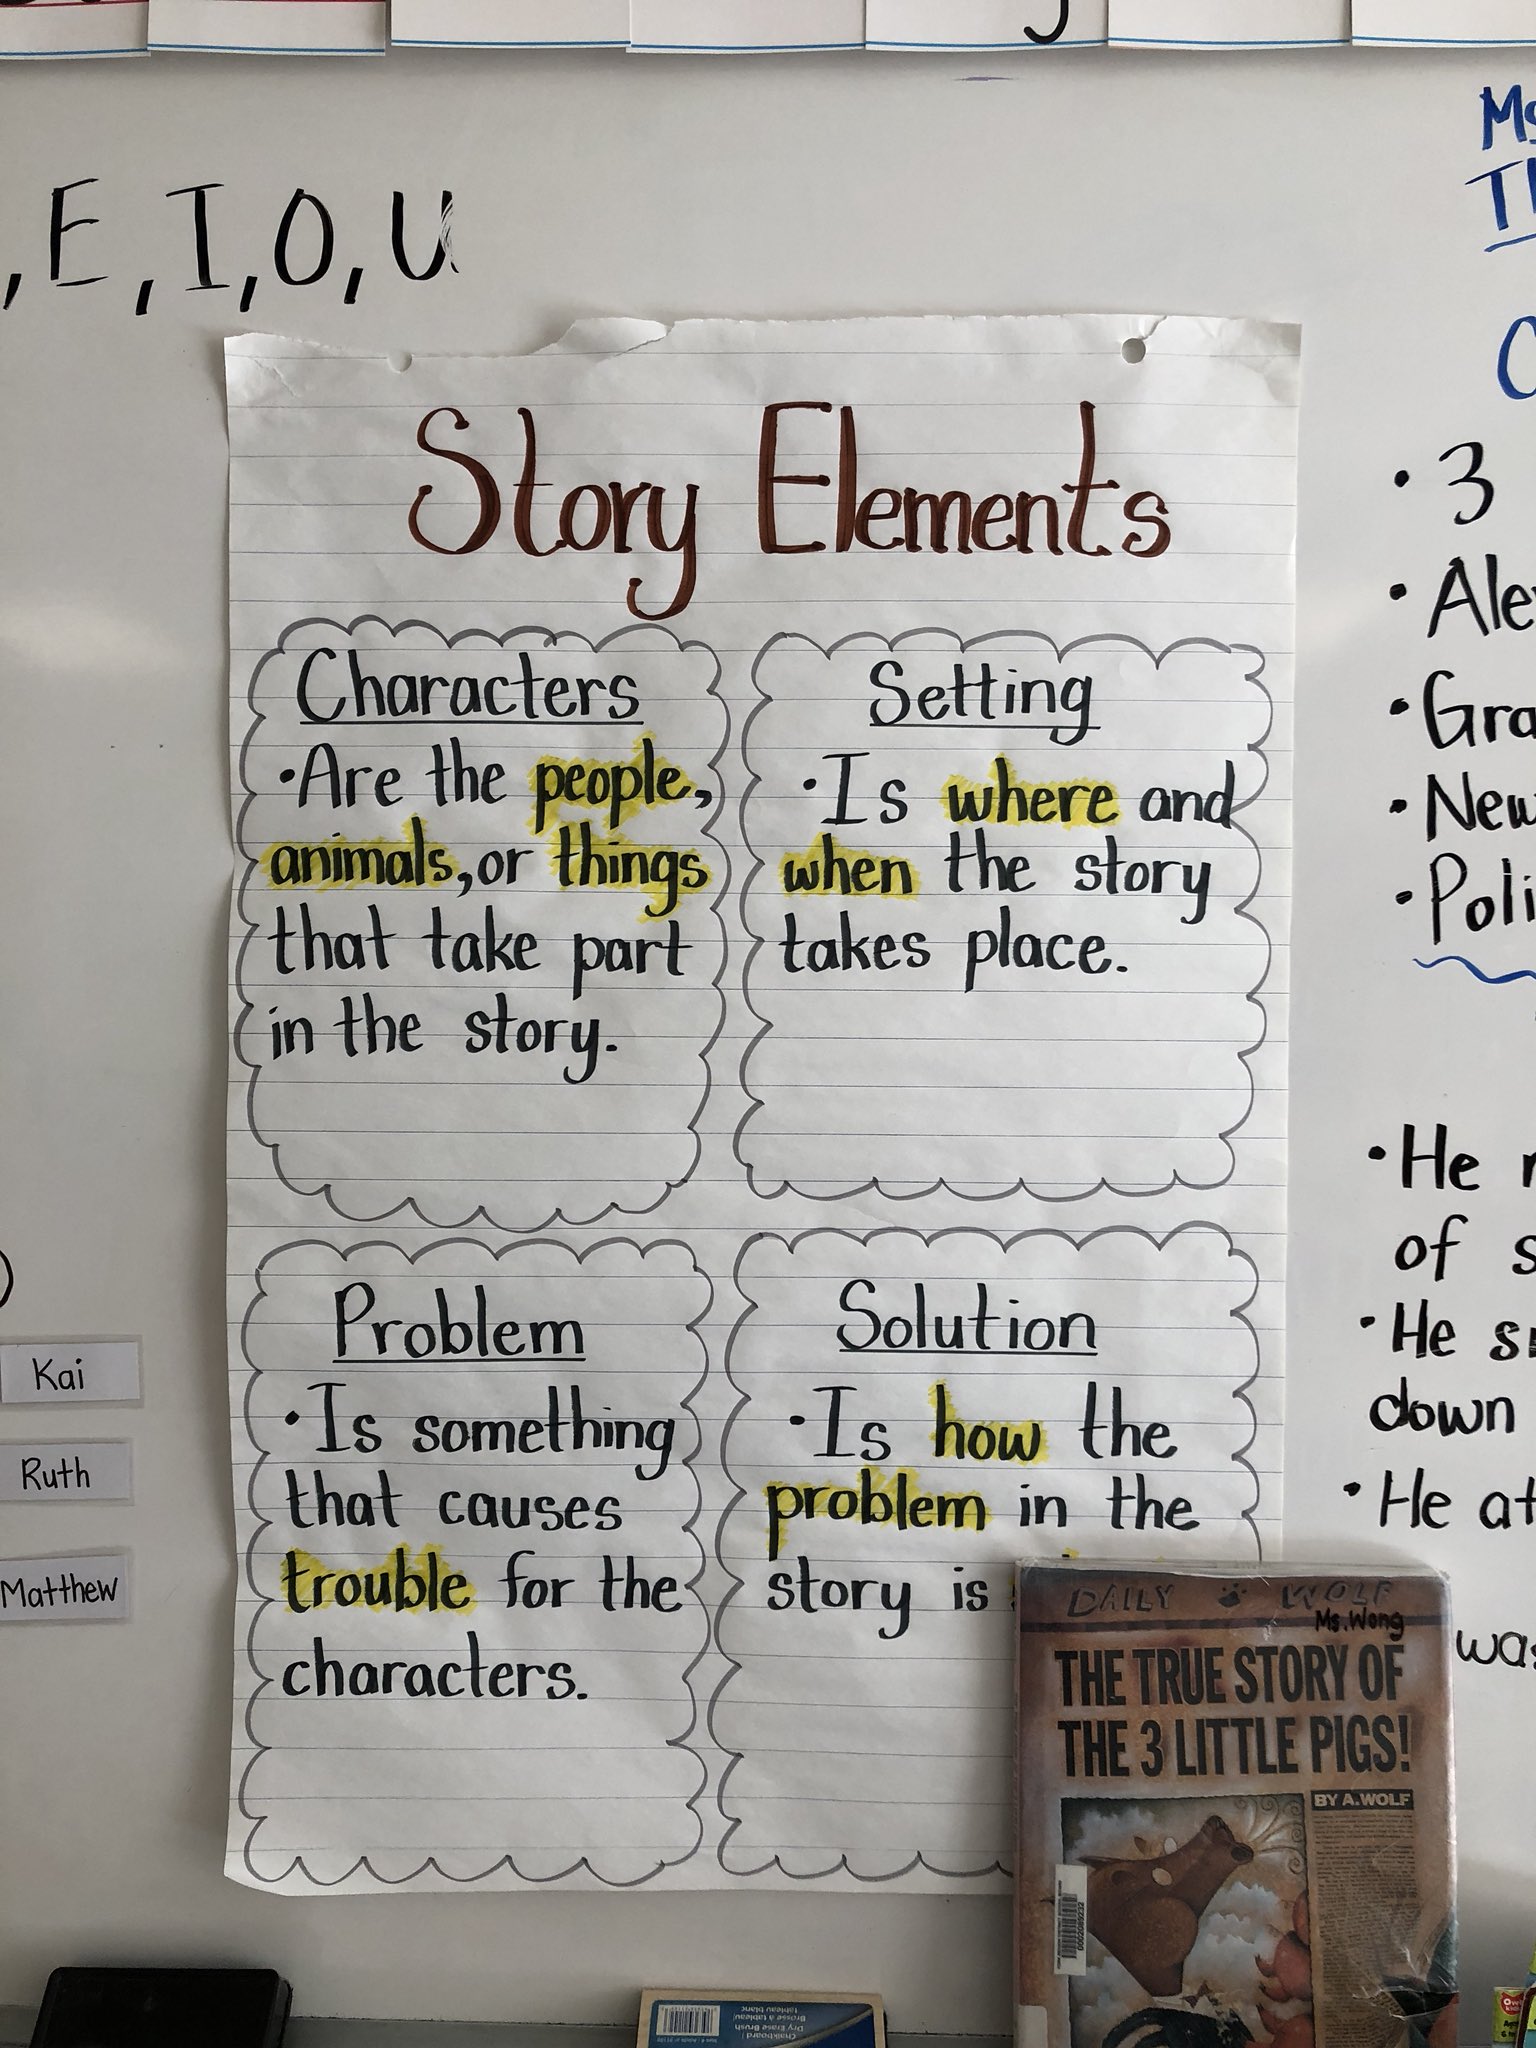 , E, I, O, U
Story Elements
Characters
• Are the people,
animals, or things
that take part
in the story.
Setting
• Is where and
when the story
takes place.
Problem
• Is something
that causes
trouble for the
characters.
Solution
• Is how the
problem in the
story is
Kai
Ruth
Matthew
• 3
• New
• He
of
• He
down
• He
was
DAILY WOLF
Ms. Wong
THE TRUE STORY OF
THE 3 LITTLE PIGS!
BY A. WOLF
0002089232
Chalkboard |
Dry Erase Brush
Brosse à tableau|
tableau blanc